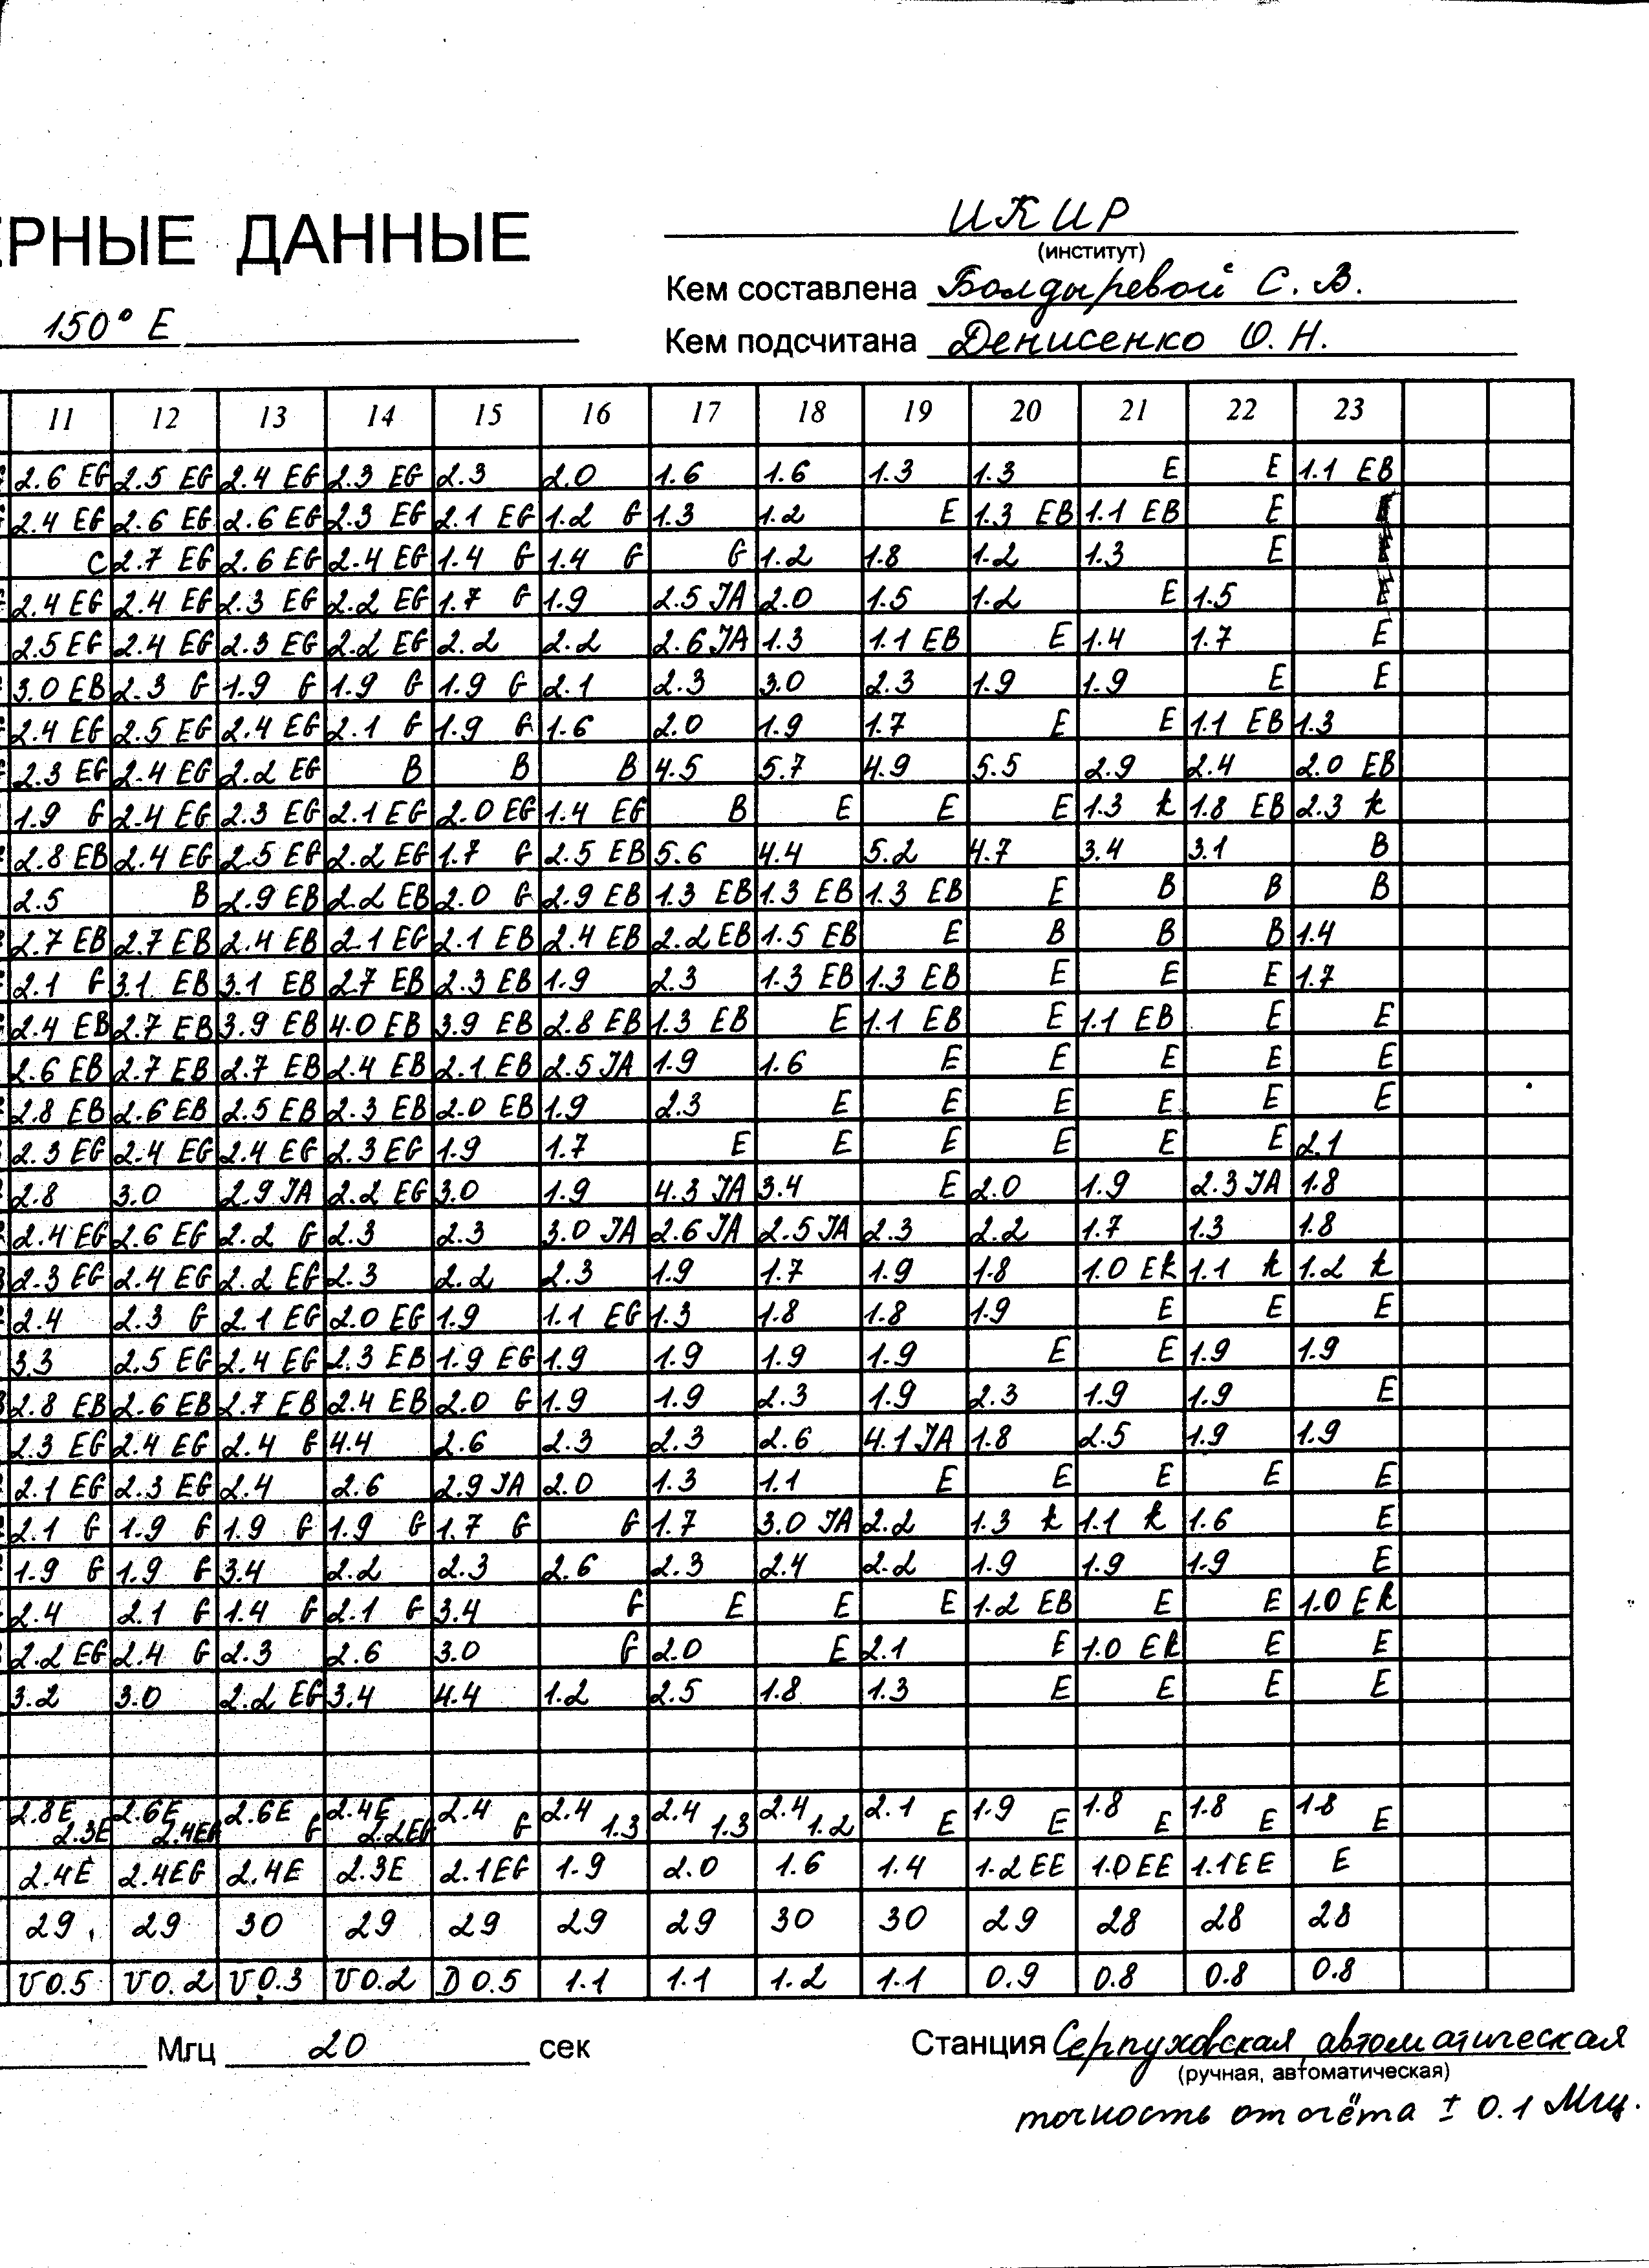 ИКИР
ЕРНЫЕ ДАННЫЕ
(институт)
Кем составлена Болдыревой С. В.
150° E
Кем подсчитана Денисенко О. Н.
11 12 13 14 15 16 17 18 19 20 21 22 23
2.6 EG 2.5 EG 2.4 EG 2.3 EG 2.3 2.0 1.6 1.6 1.3 1.3 E E 1.1 EB
2.4 EG 2.6 EG 2.6 EG 2.3 EG 2.1 EG 1.2 G 1.3 1.2 E 1.3 EB 1.1 EB E
C 2.7 EG 2.6 EG 2.4 EG 1.4 G 1.4 G G 1.2 1.8 1.2 1.3 E
2.4 EG 2.4 EG 2.3 EG 2.2 EG 1.7 G 1.9 2.5 JA 2.0 1.5 1.2 E 1.5 E
2.5 EG 2.4 EG 2.3 EG 2.2 EG 2.2 2.2 2.6 JA 1.3 1.1 EB E 1.4 1.7 E
3.0 EB 2.3 G 1.9 G 1.9 G 1.9 G 2.1 2.3 3.0 2.3 1.9 1.9 E E
2.4 EG 2.5 EG 2.4 EG 2.1 G 1.9 G 1.6 2.0 1.9 1.7 E E 1.1 EB 1.3
2.3 EG 2.4 EG 2.2 EG B B B 4.5 5.7 4.9 5.5 2.9 2.4 2.0 EB
1.9 G 2.4 EG 2.3 EG 2.1 EG 2.0 EG 1.4 EG B E E E 1.3 k 1.8 EB 2.3 k
2.8 EB 2.4 EG 2.5 EG 2.2 EG 1.7 G 2.5 EB 5.6 4.4 5.2 4.7 3.4 3.1 B
2.5 B 2.9 EB 2.2 EB 2.0 G 2.9 EB 1.3 EB 1.3 EB 1.3 EB E B B B
2.7 EB 2.7 EB 2.4 EB 2.1 EG 2.1 EB 2.4 EB 2.2 EB 1.5 EB E B B B 1.4
2.1 G 3.1 EB 3.1 EB 2.7 EB 2.3 EB 1.9 2.3 1.3 EB 1.3 EB E E E 1.7
2.4 EB 2.7 EB 3.9 EB 4.0 EB 3.9 EB 2.8 EB 1.3 EB E 1.1 EB E 1.1 EB E E
2.6 EB 2.7 EB 2.7 EB 2.4 EB 2.1 EB 2.5 JA 1.9 1.6 E E E E E
2.8 EB 2.6 EB 2.5 EB 2.3 EB 2.0 EB 1.9 2.3 E E E E E E
2.3 EG 2.4 EG 2.4 EG 2.3 EG 1.9 1.7 E E E E E E 2.1
2.8 3.0 2.9 JA 2.2 EG 3.0 1.9 4.3 JA 3.4 E 2.0 1.9 2.3 JA 1.8
2.4 EG 2.6 EG 2.2 G 2.3 2.3 3.0 JA 2.6 JA 2.5 JA 2.3 2.2 1.7 1.3 1.8
2.3 EG 2.4 EG 2.2 EG 2.3 2.2 2.3 1.9 1.7 1.9 1.8 1.0 Ek 1.1 k 1.2 k
2.4 2.3 G 2.1 EG 2.0 EG 1.9 1.1 EG 1.3 1.8 1.8 1.9 E E E
3.3 2.5 EG 2.4 EG 2.3 EB 1.9 EG 1.9 1.9 1.9 1.9 E E 1.9 1.9
2.8 EB 2.6 EB 2.7 EB 2.4 EB 2.0 G 1.9 1.9 2.3 1.9 2.3 1.9 1.9 E
2.3 EG 2.4 EG 2.4 G 4.4 2.6 2.3 2.3 2.6 4.1 JA 1.8 2.5 1.9 1.9
2.1 EG 2.3 EG 2.4 2.6 2.9 JA 2.0 1.3 1.1 E E E E E
2.1 G 1.9 G 1.9 G 1.9 G 1.7 G G 1.7 3.0 JA 2.2 1.3 k 1.1 k 1.6 E
1.9 G 1.9 G 3.4 2.2 2.3 2.6 2.3 2.4 2.2 1.9 1.9 1.9 E
2.4 2.1 G 1.4 G 2.1 G 3.4 G E E E 1.2 EB E E 1.0 Ek
2.2 EG 2.4 G 2.3 2.6 3.0 G 2.0 E 2.1 E 1.0 Ek E E
3.2 3.0 2.2 EG 3.4 4.4 1.2 2.5 1.8 1.3 E E E E
2.8E 2.6E 2.6E 2.4E 2.4 2.4 2.4 2.4 2.1 1.9 1.8 1.8 1.8
2.3E 2.4EG G 2.2EG G 1.3 1.3 1.2 E E E E E
2.4E 2.4EG 2.4E 2.3E 2.1EG 1.9 2.0 1.6 1.4 1.2 EE 1.0 EE 1.1 EE E
29 29 30 29 29 29 29 30 30 29 28 28 28
U 0.5 U 0.2 U 0.3 U 0.2 D 0.5 1.1 1.1 1.2 1.1 0.9 0.8 0.8 0.8
Мгц 20 сек Станция Серпуховская автоматическая
(ручная, автоматическая)
точность отсчёта ± 0.1 Мгц.